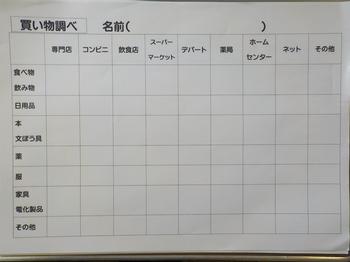 買い物調べ 名前( )
専門店 コンビニ 飲食店 スーパーマーケット デパート 薬局 ホームセンター ネット その他
食べ物
飲み物
日用品
本
文ぼう具
薬
服
家具
電化製品
その他